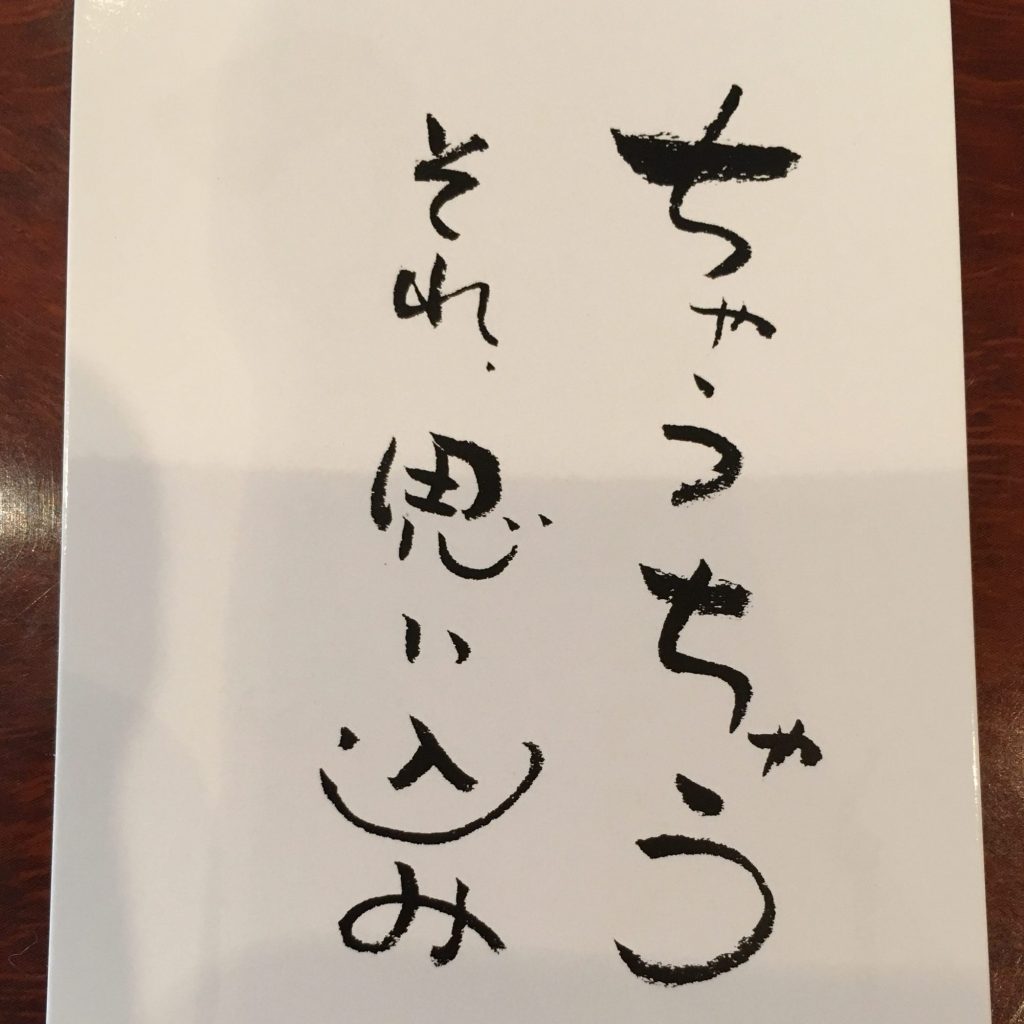 ちゃうちゃう
それ、思い込み